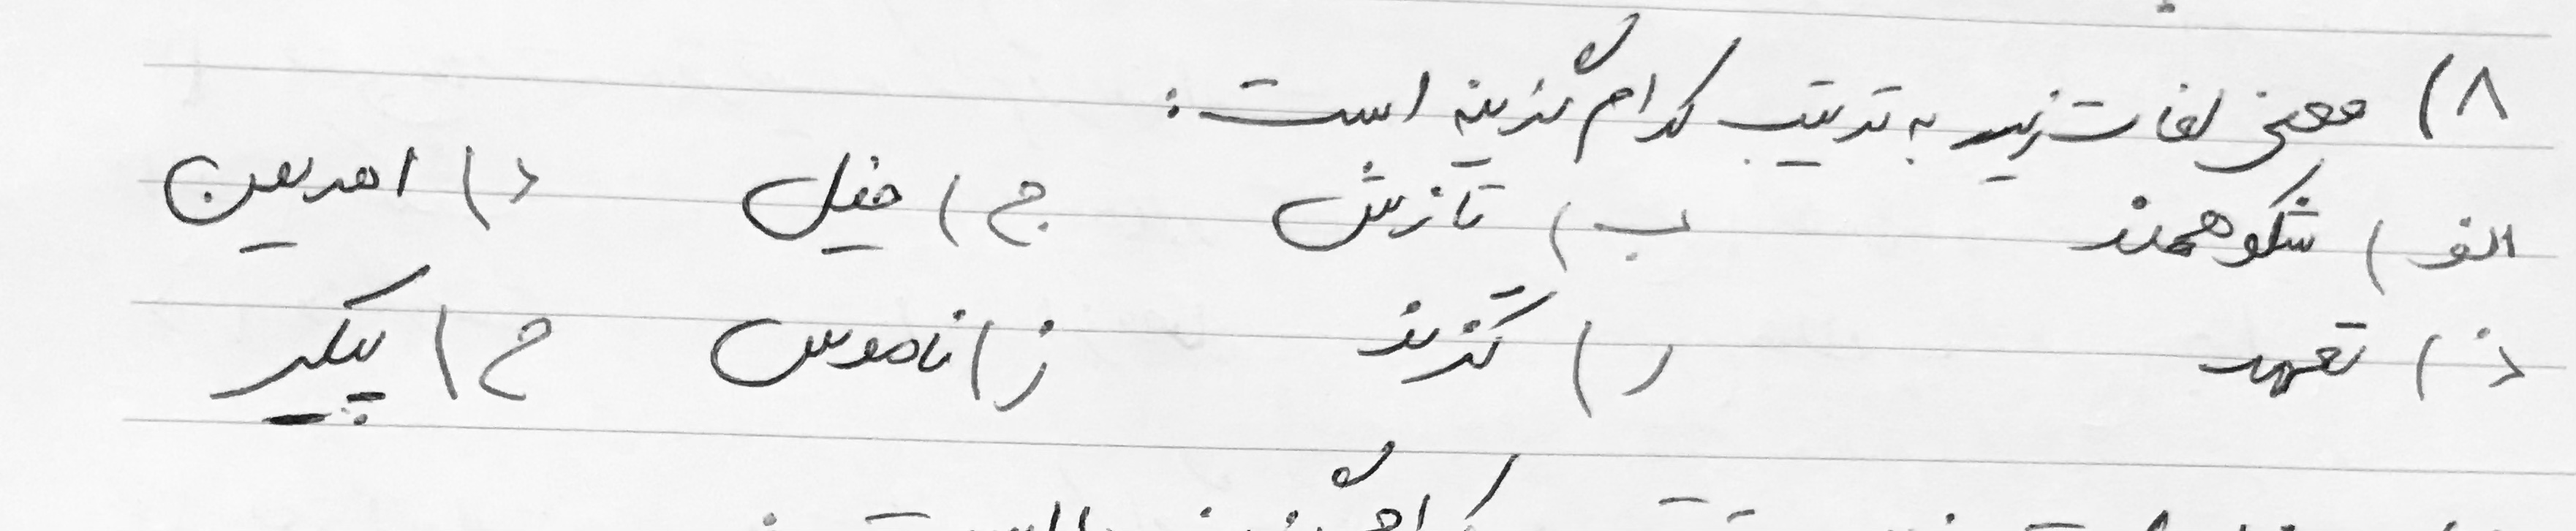 ۸) معنی لغات زیر به ترتیب کدام گزینه است:
الف) شکوهمند ب) تازش ج) خیل د) اهریمن
ذ) تعهد ر) گزند ز) ناموس ح) پیکر